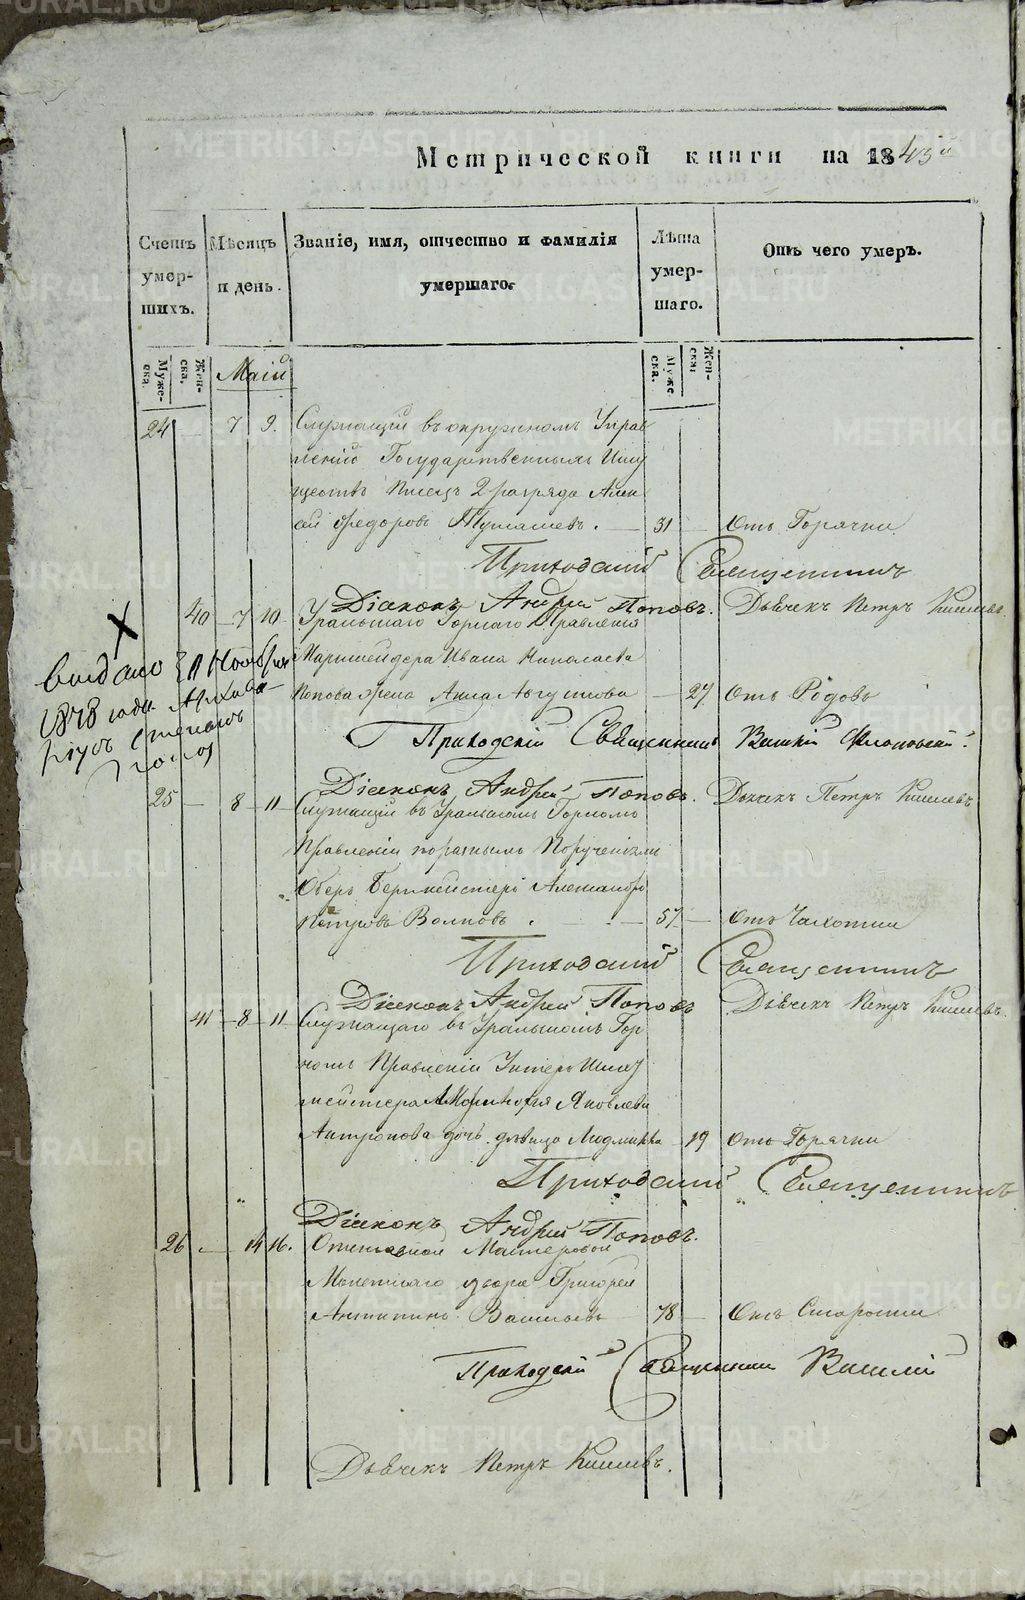 Метрической книги на 1843й
Счетъ умершихъ.
Мѣсяцъ и день.
Званіе, имя, отчество и фамилія умершаго.
Лѣта умершаго.
Отъ чего умеръ.
Мужеска.
Женска,
Маій
Мужеска.
Женска;
24 — 7 9. Служащій въ окружномъ Управ
леніи Государственныхъ Иму
ществъ Писецъ 2 разряда Алек
ѣй Федоровъ . — 31 — Отъ Горячки
Приходскій Священникъ
Діаконъ Андрей Поповъ. Дьячекъ Петръ
40 — 7 — 10 Уральскаго Горнаго Правленія
Маркшейдера Ивана Николаева
Попова жена Анна Августова — 27 Отъ Родовъ
Приходскій Священникъ Василій
выдано 31 Ноября
1878 года
Діаконъ Андрей Поповъ. Дьячекъ Петръ
25 — 8 — 11 Служащій въ Уральскомъ Горномъ
Правленіи по разнымъ Порученіямъ
Оберъ Бергмейстеръ Александръ
Петровъ Волковъ . — 57 — Отъ Чахотки
Приходскій Священникъ
Діаконъ Андрей Поповъ Дьячекъ Петръ
41 — 8 — 11 Служащаго въ Уральскомъ Гор
номъ Правленіи Унтеръ Шихт
мейстера Яковлева
Антропова дочь дѣвица Людмила — 19 Отъ Горячки
Приходскій Священникъ
Діаконъ Андрей Поповъ.
26 — 14 16. Отставной Мастеровой
Монетнаго двора Григорей
Антипинъ Васильевъ 78 — Отъ Старости
Приходскій Священникъ Василій
Дьячекъ Петръ
METRIKI.GASO-URAL.RU